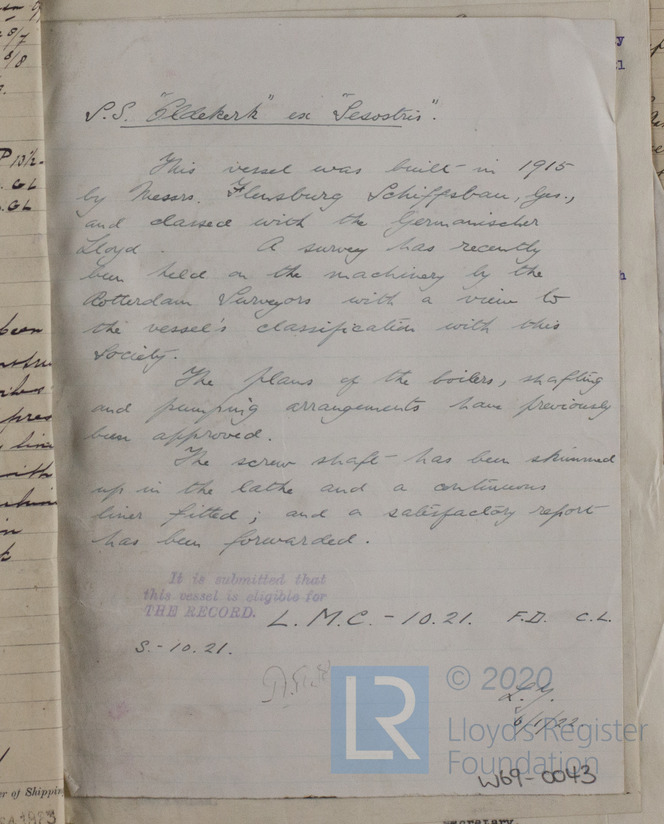 S.S. "Eldekerk" ex "Sesostris".
This vessel was built in 1915
by Messrs. Flensburg Schiffsbau, Ges.,
and classed with the Germanischer
Lloyd. A survey has recently
been held on the machinery by the
Rotterdam Surveyors with a view to
the vessel's classification with this
Society.
The plans of the boilers, shafting
and pumping arrangements have previously
been approved.
The screw shaft has been skimmed
up in the lathe and a continuous
liner fitted; and a satisfactory report
has been forwarded.
It is submitted that
this vessel is eligible for
THE RECORD. L.M.C. - 10.21. F.D. C.L.
S. - 10.21.
LR
© 2020
Lloyd's Register
Foundation
6/1/22
W69-0043
er of Shipping